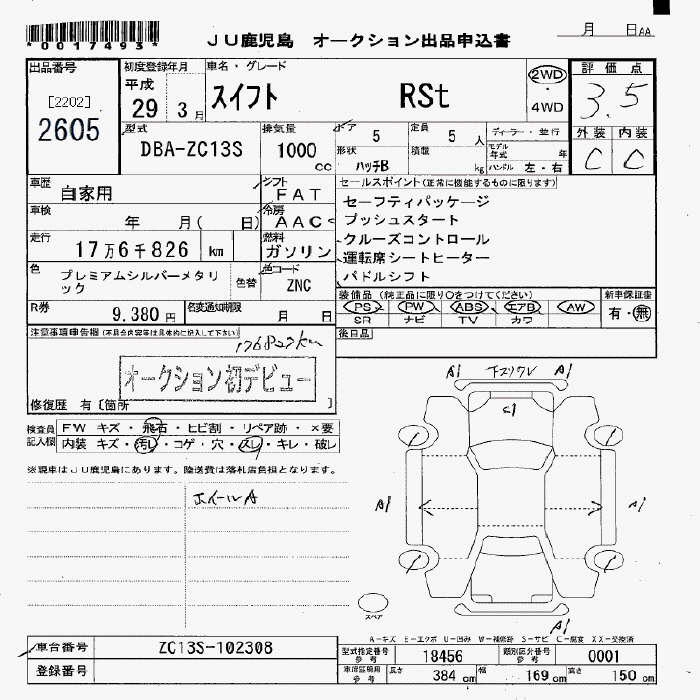 *0017493*
JU鹿児島 オークション出品申込書
月 日AA
出品番号
[2202]
2605
初度登録年月
平成
29 3 月
車名・グレード
スイフト RSt
2WD
・
4WD
評価点
3.5
外装 内装
C C
型式
DBA-ZC13S
排気量
1000
cc
ドア 5
定員 5 人
形状
ハッチB
積載 kg
ディーラー・並行
モデル年式 年
ハンドル 左・右
車歴
自家用
シフト
FAT
車検
年 月( 日)
冷房
AAC
走行
17万6千826 km
燃料
ガソリン
色
プレミアムシルバーメタリック
色替
色コード
ZNC
R券
9,380円
名変通知期限
月 日
セールスポイント(正常に機能するものに限ります)
セーフティパッケージ
プッシュスタート
クルーズコントロール
運転席シートヒーター
パドルシフト
装備品(純正品に限り○をつけてください)
PS PW ABS エアB AW
SR ナビ TV カワ
新車保証書
有・無
後日品
注意事項申告欄(不具合内容等は具体的に記入して下さい)
オークション初デビュー
修復歴 有〔箇所 〕
検査員記入欄
FW キズ・飛石・ヒビ割・リペア跡・×要
内装 キズ・汚レ・コゲ・穴・スレ・キレ・破レ
※現車はJU鹿児島にあります。陸送費は落札店負担となります。
ホイールA
A1 下スリクレ A1
C1
A1 A1
スペア
A1
A-キズ E-エクボ U-凹み W-補修跡 S-サビ C-腐食 XX-交換済
車台番号 ZC13S-102308
登録番号
型式指定番号
参考
18456
類別区分番号
参考
0001
車庫証明用
参考
長さ 384 cm 幅 169 cm 高さ 150 cm